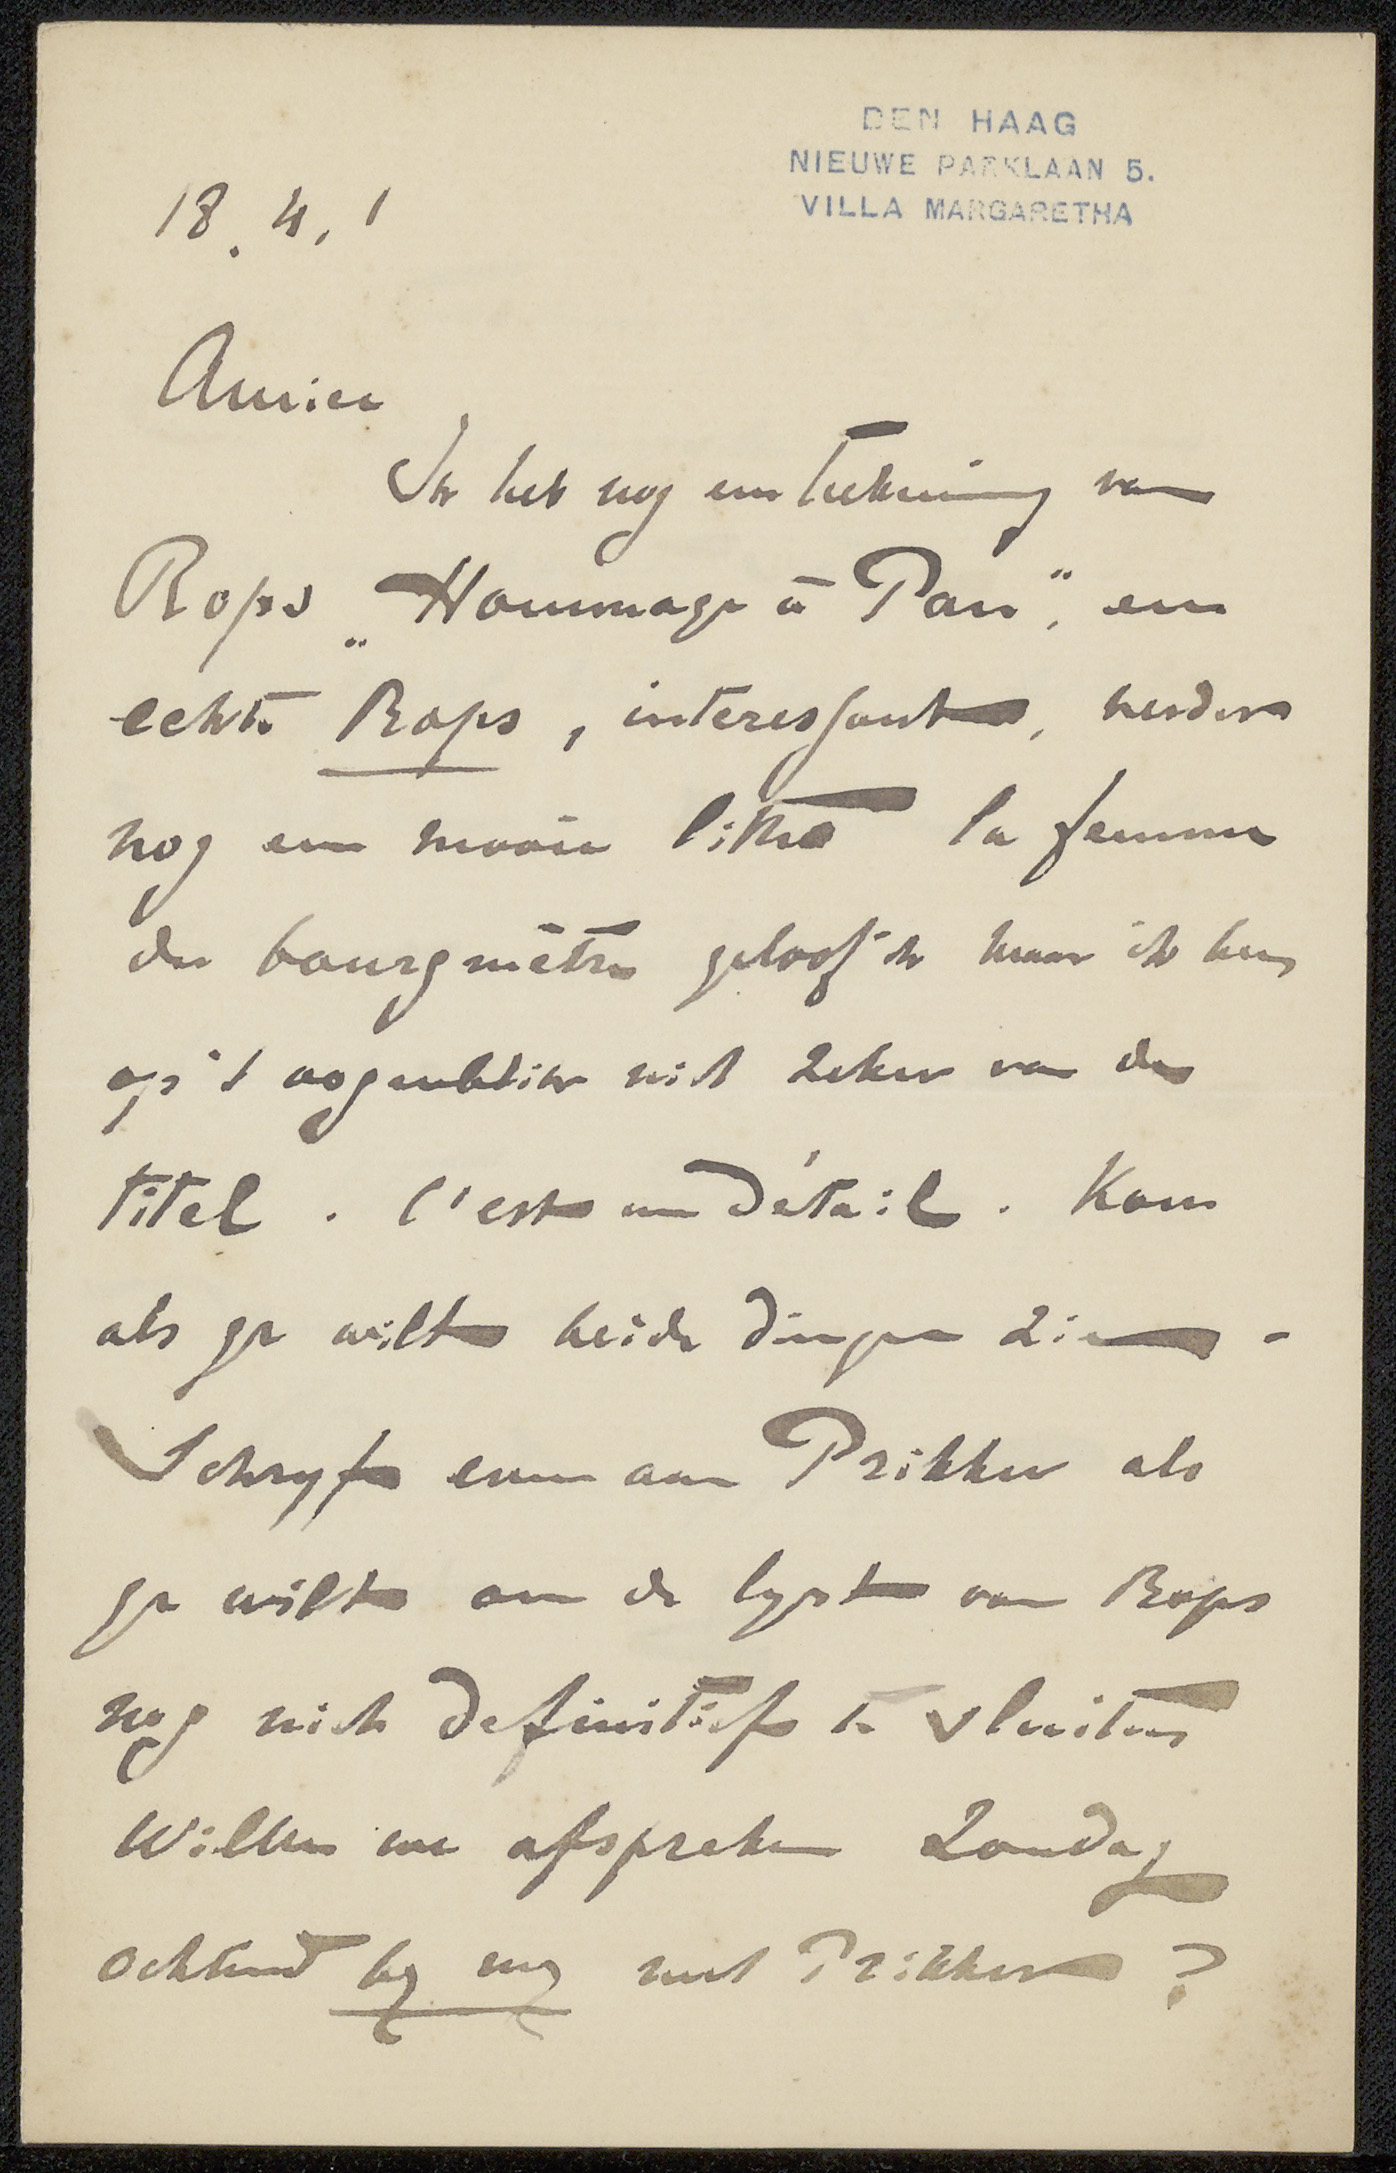 DEN HAAG
NIEUWE PARKLAAN 5.
VILLA MARGARETHA
18.4.1
Amice
Ik heb nog een teekening van
Rops „Hommage à Pan", een
echte Rops, interessant, verder
nog een mooie litho la femme
du bourgmêtre geloof ik maar ik ben
op 't oogenblik niet zeker van de
titel. C'est un détail. Kom
als ge wilt beide dingen zien -
Schryf even aan Prikker als
ge wilt om de lyst van Rops
nog niet definitief te sluiten
Willen we afspreken Zondag
ochtend by my met Prikker?